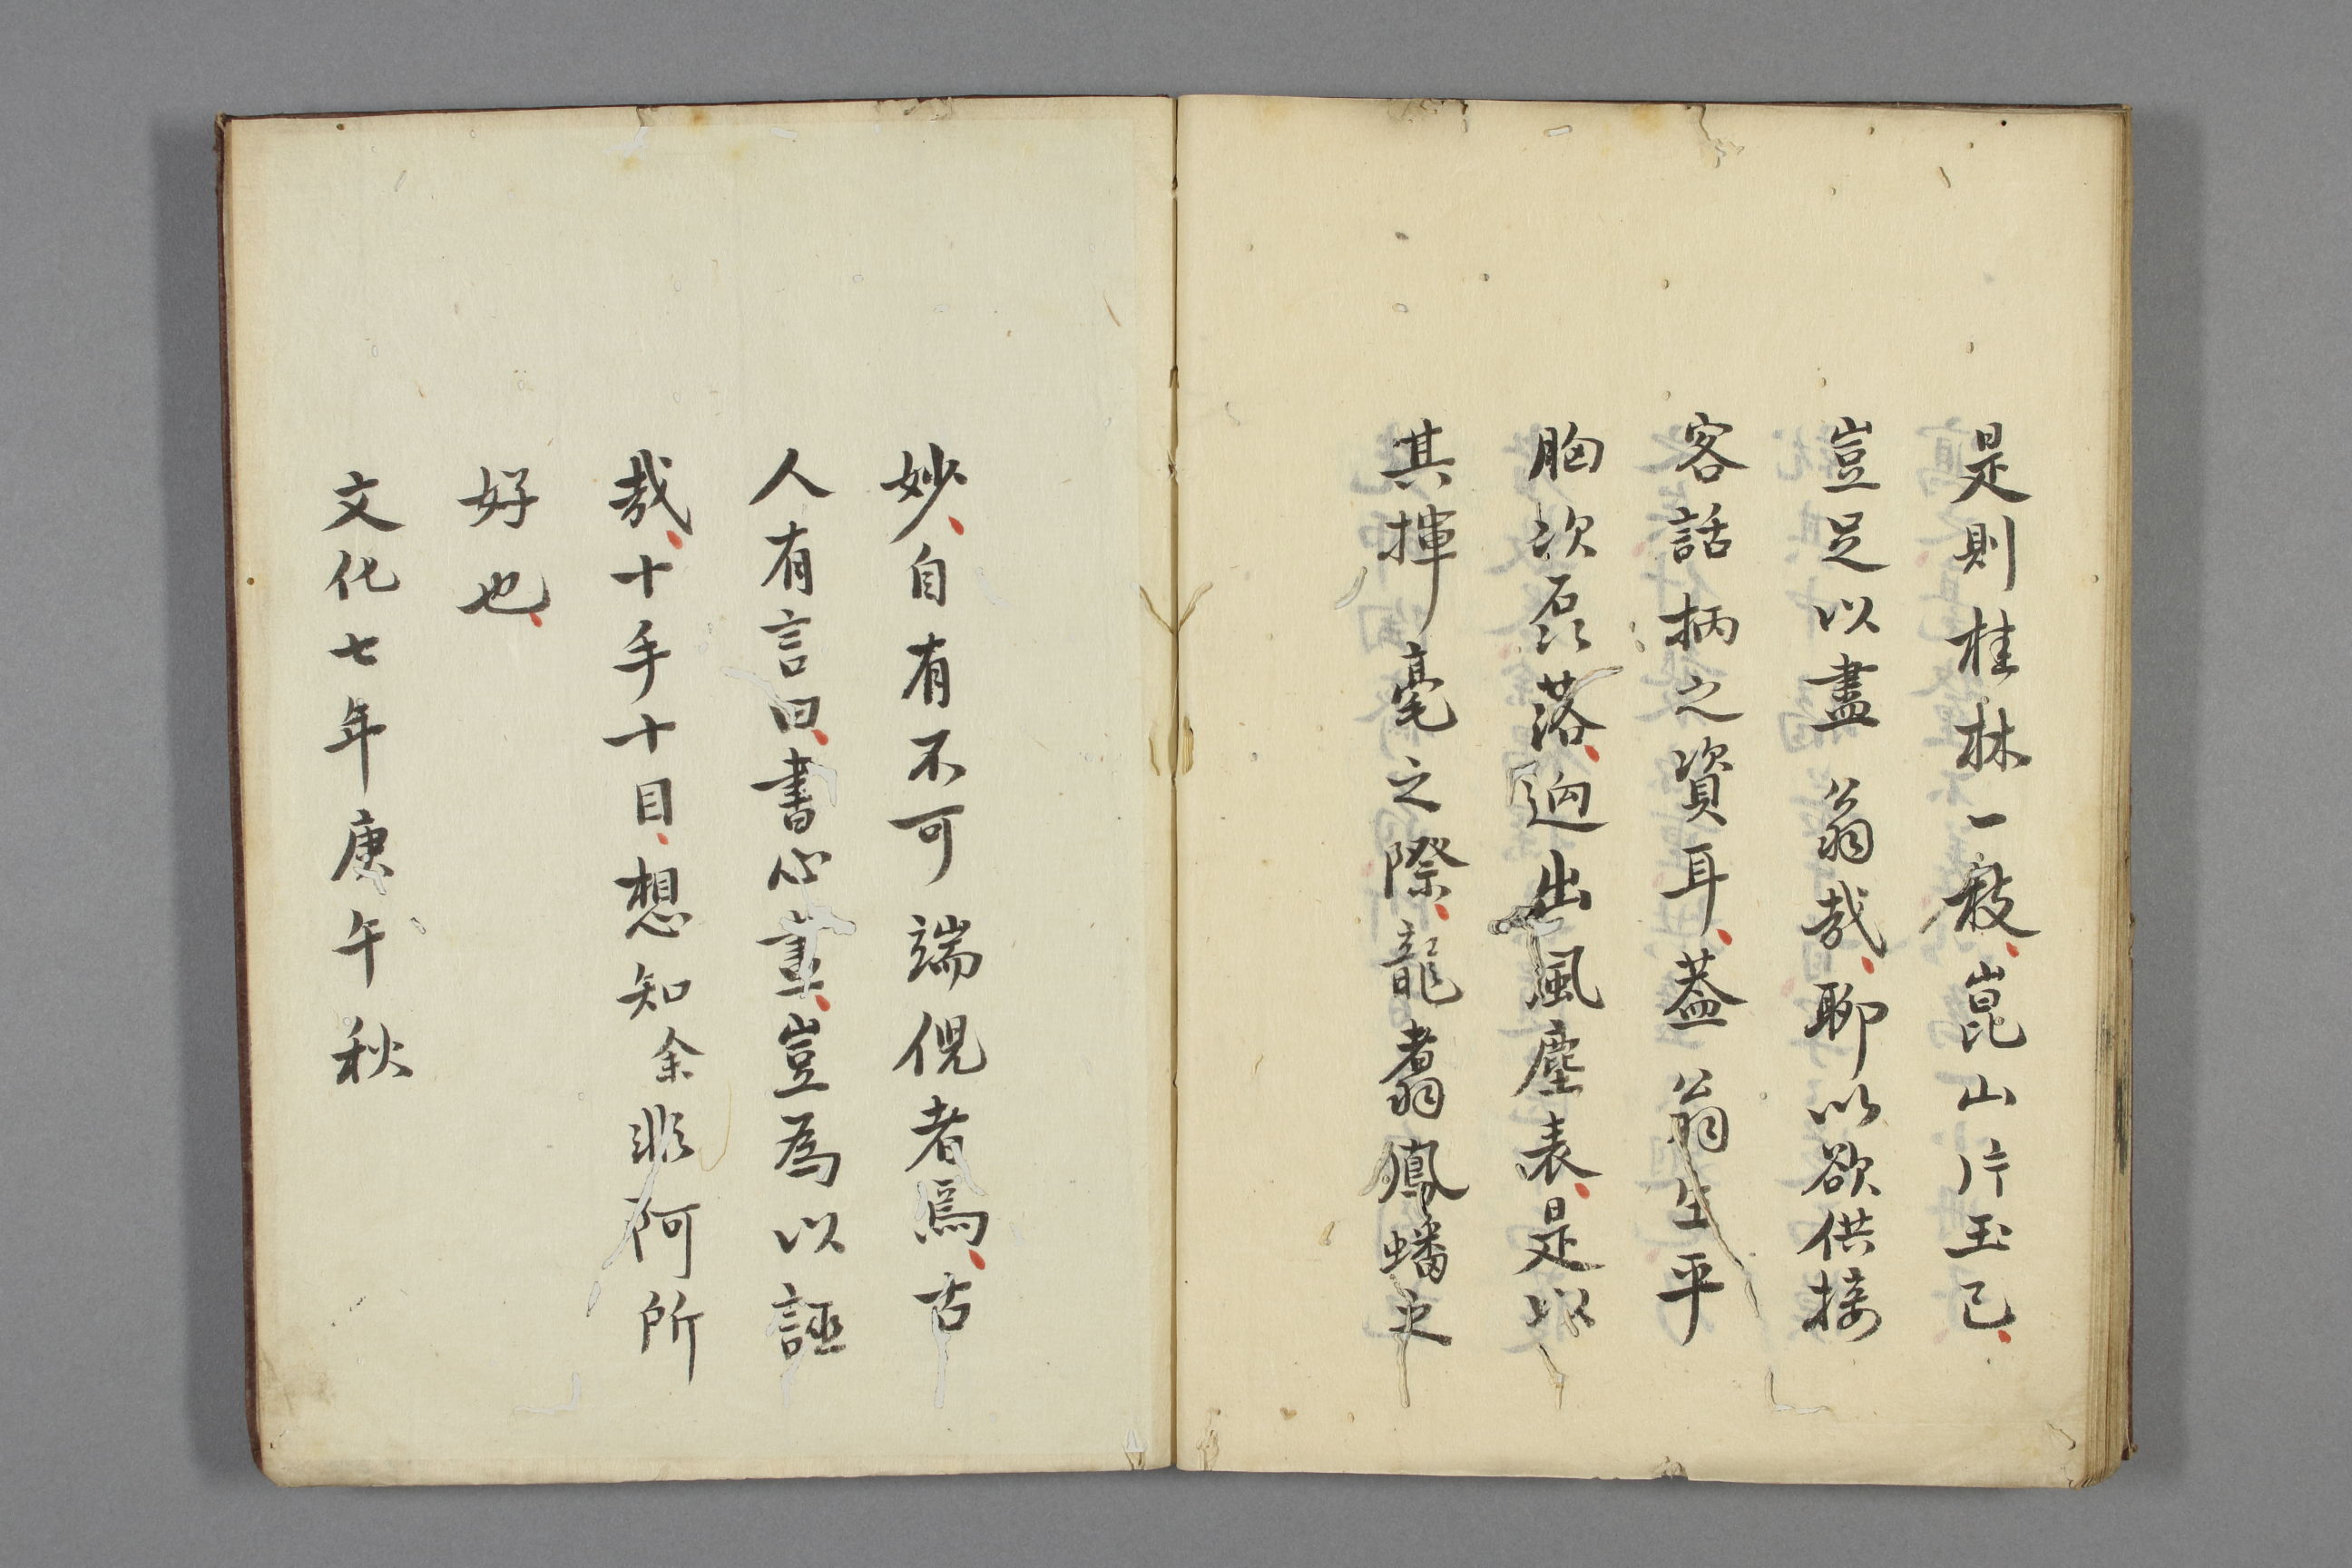 是則桂林一枝崑山片玉已
豈足以盡翁哉聊以欲供接
客話柄之資耳蓋翁生平
胸次磊落迥出風塵表是以
其揮毫之際龍翥鳳蟠之
妙自有不可端倪者焉古
人有言曰書心畫豈為以誣
哉十手十目想知余非阿所
好也
文化七年庚午秋